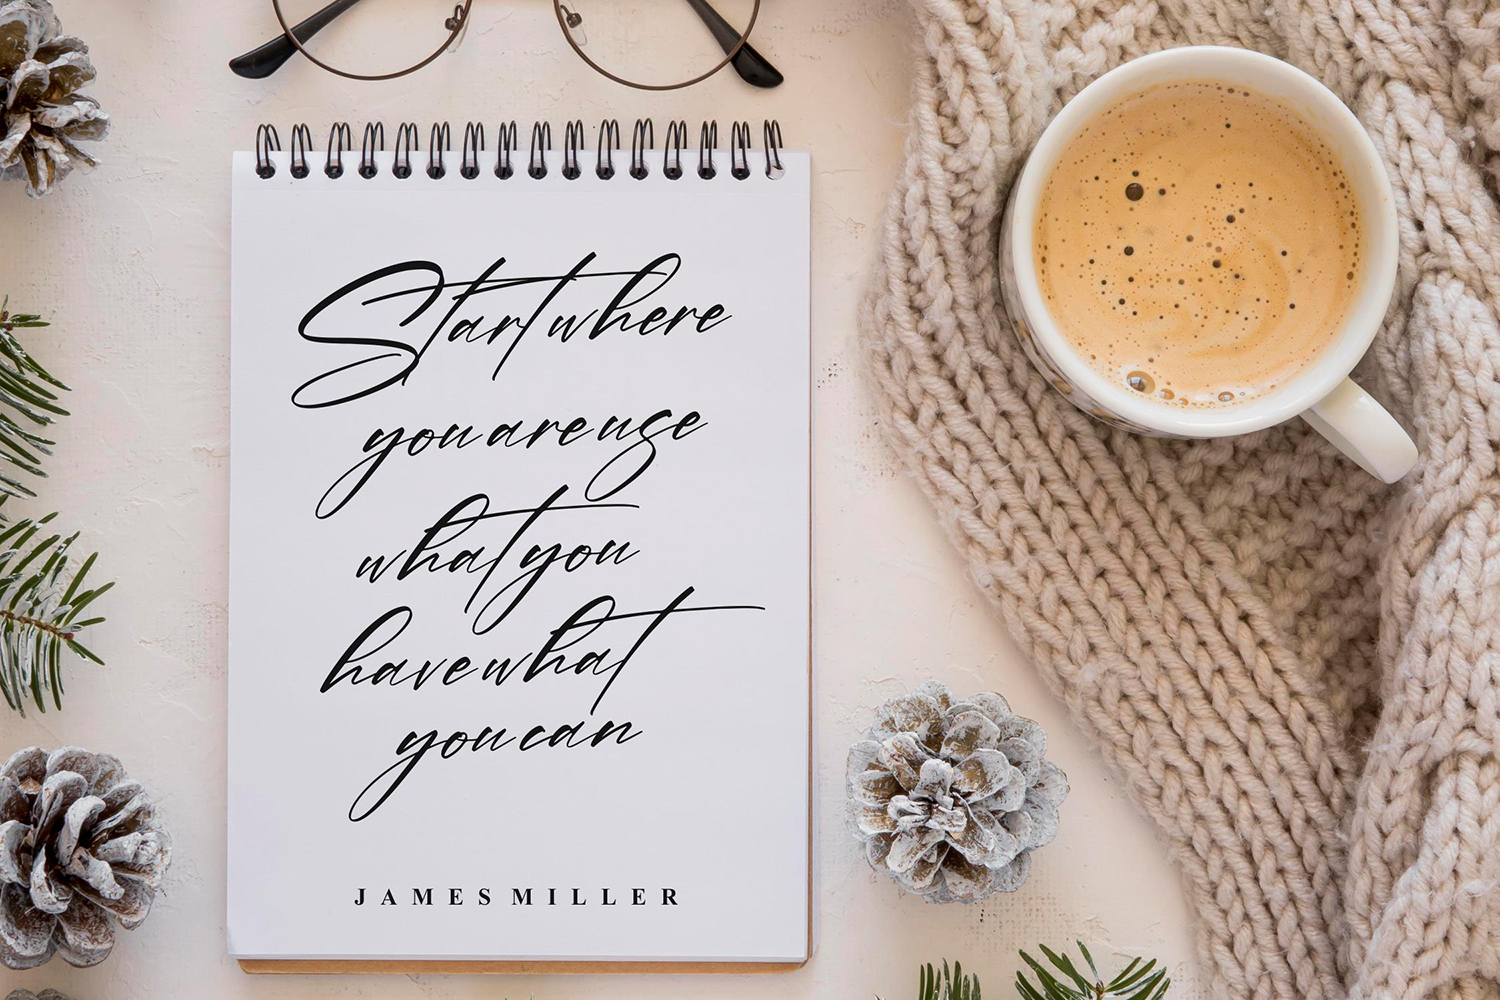 Start where
you are use
what you
have what
you can
JAMES MILLER